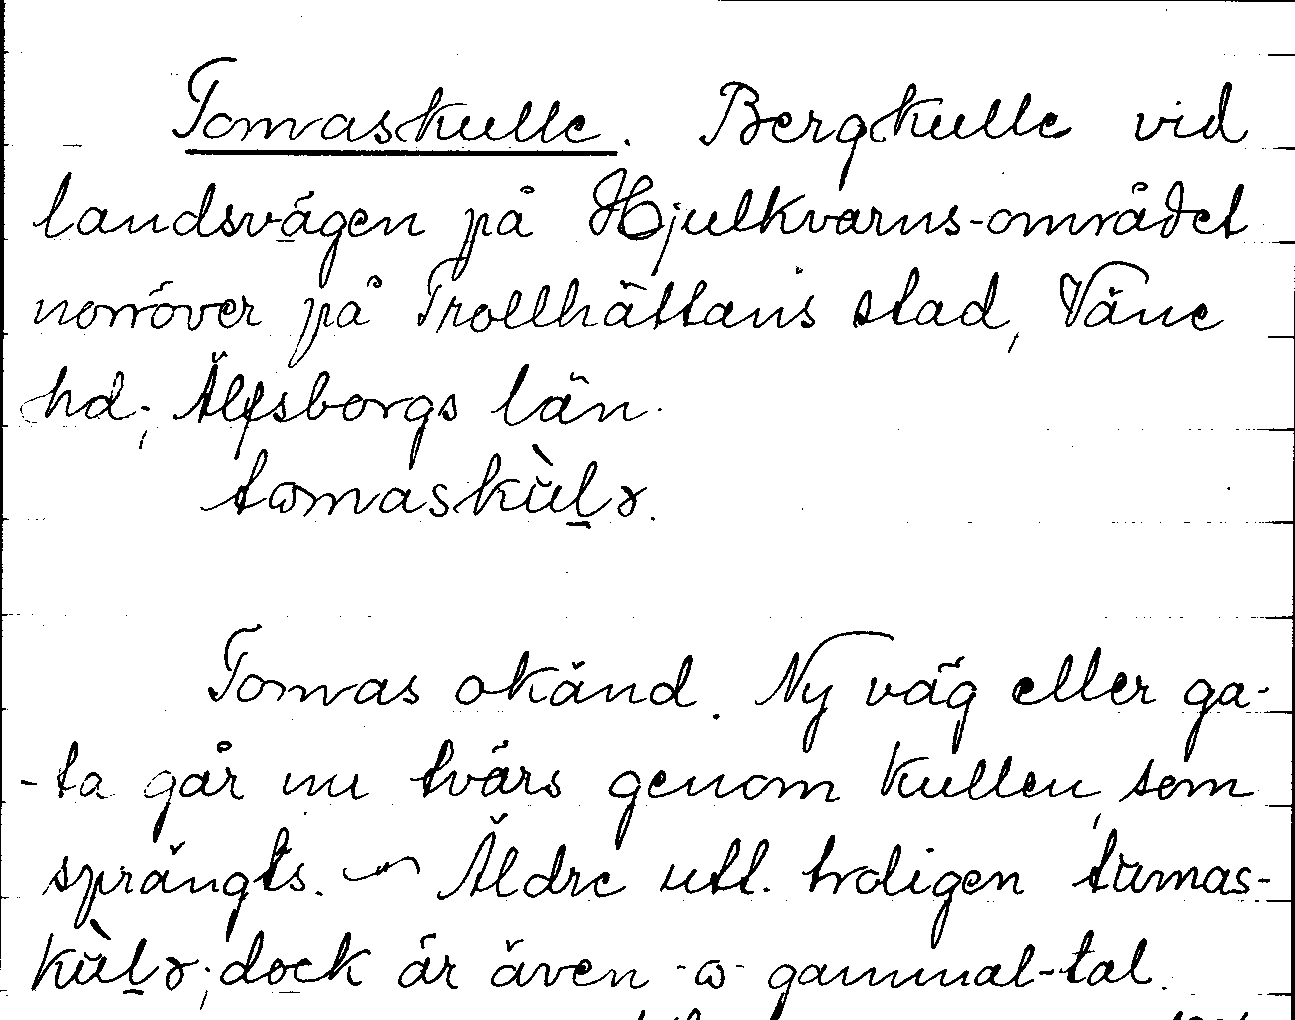 Tomaskulle. Bergkulle vid
landsvägen på Hjulkvarns-området
norröver på Trollhättans stad, Väne
hd, Älfsborgs län.
tωmaskùlɤ.
Tomas okänd. Ny väg eller ga-
-ta går nu tvärs genom kullen, som
sprängts. — Äldre utt. troligen tumas-
kùlɤ; dock är även -ω- gammal-tal.